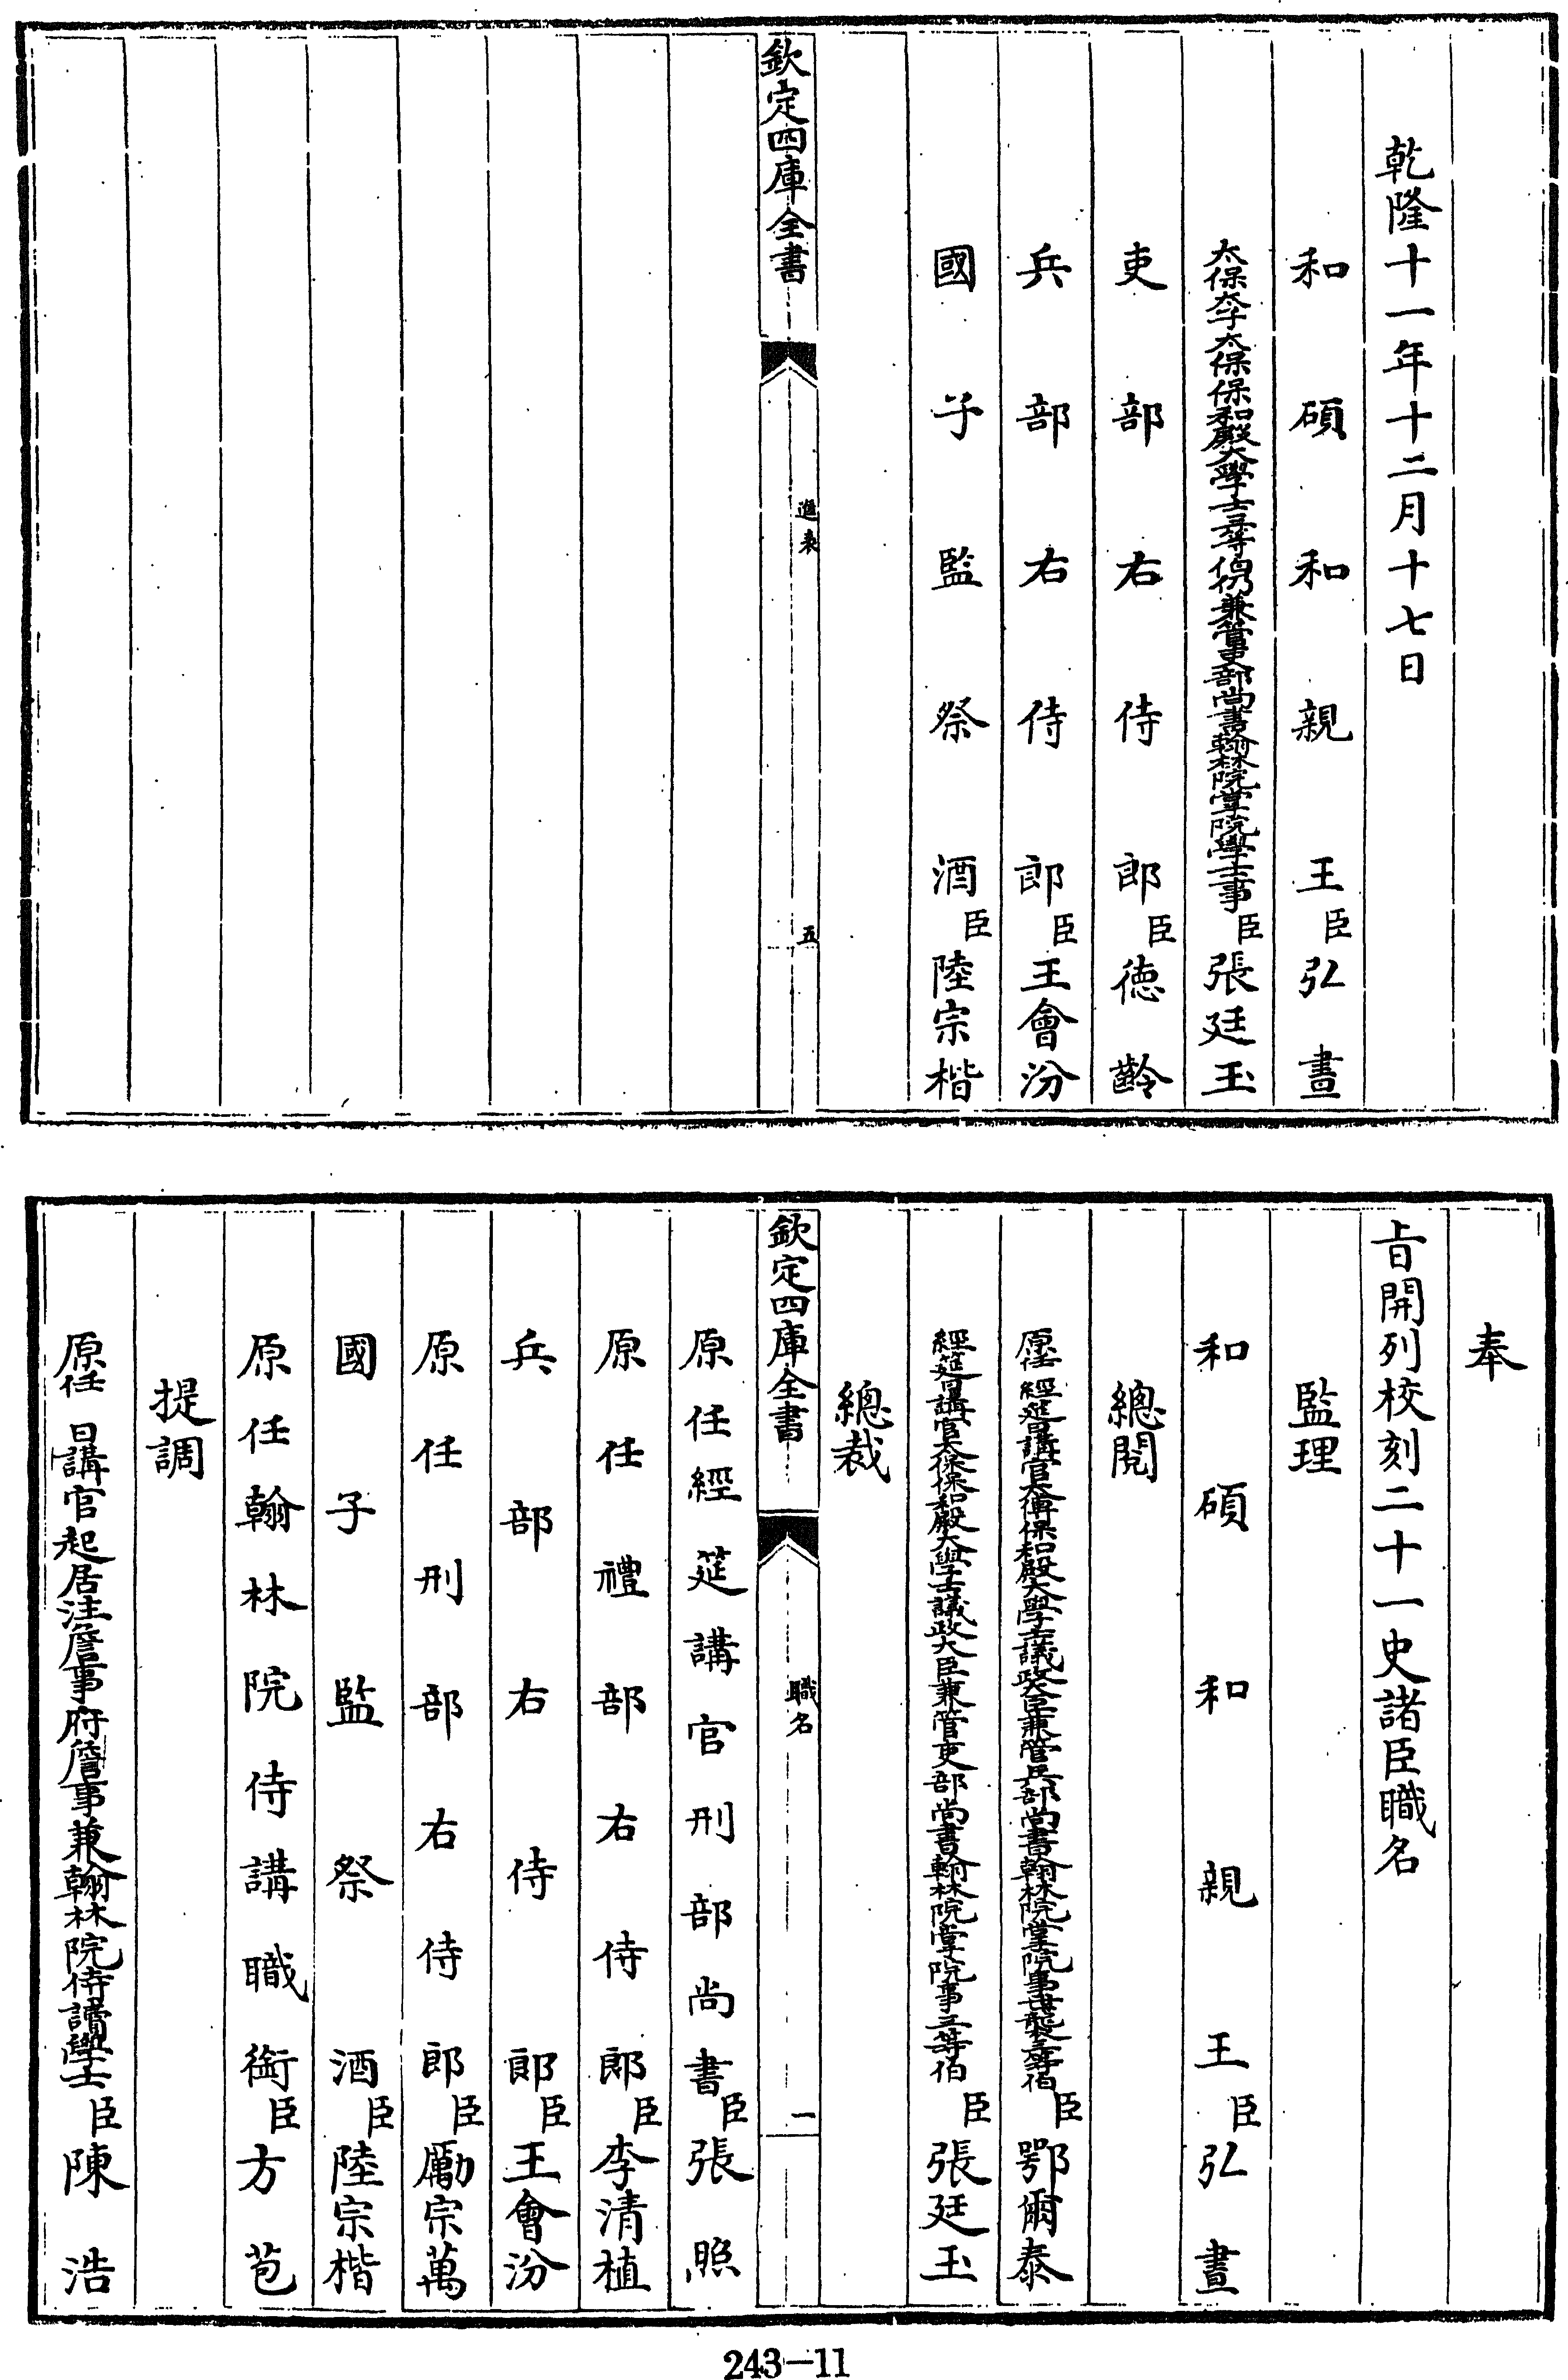 乾隆十一年十二月十七日
和碩和親王臣弘晝
太保太子太保保和殿大學士三等伯仍兼管吏部尚書翰林院掌院學士事臣張廷玉
吏部右侍郎臣德齡
兵部右侍郎臣王會汾
國子監祭酒臣陸宗楷
欽定四庫全書
進表
五
奉
旨開列校刻二十一史諸臣職名
監理
和碩和親王臣弘晝
總閱
原任經筵日講官太傅保和殿大學士議政大臣兼管兵部尚書翰林院掌院事世襲三等伯臣鄂爾泰
經筵日講官太保保和殿大學士議政大臣兼管吏部尚書翰林院掌院事三等伯臣張廷玉
總裁
欽定四庫全書
職名
一
原任經筵講官刑部尚書臣張照
原任禮部右侍郎臣李清植
兵部右侍郎臣王會汾
原任刑部右侍郎臣勵宗萬
國子監祭酒臣陸宗楷
原任翰林院侍講職銜臣方苞
提調
原任日講官起居注詹事府詹事兼翰林院侍讀學士臣陳浩
243—11